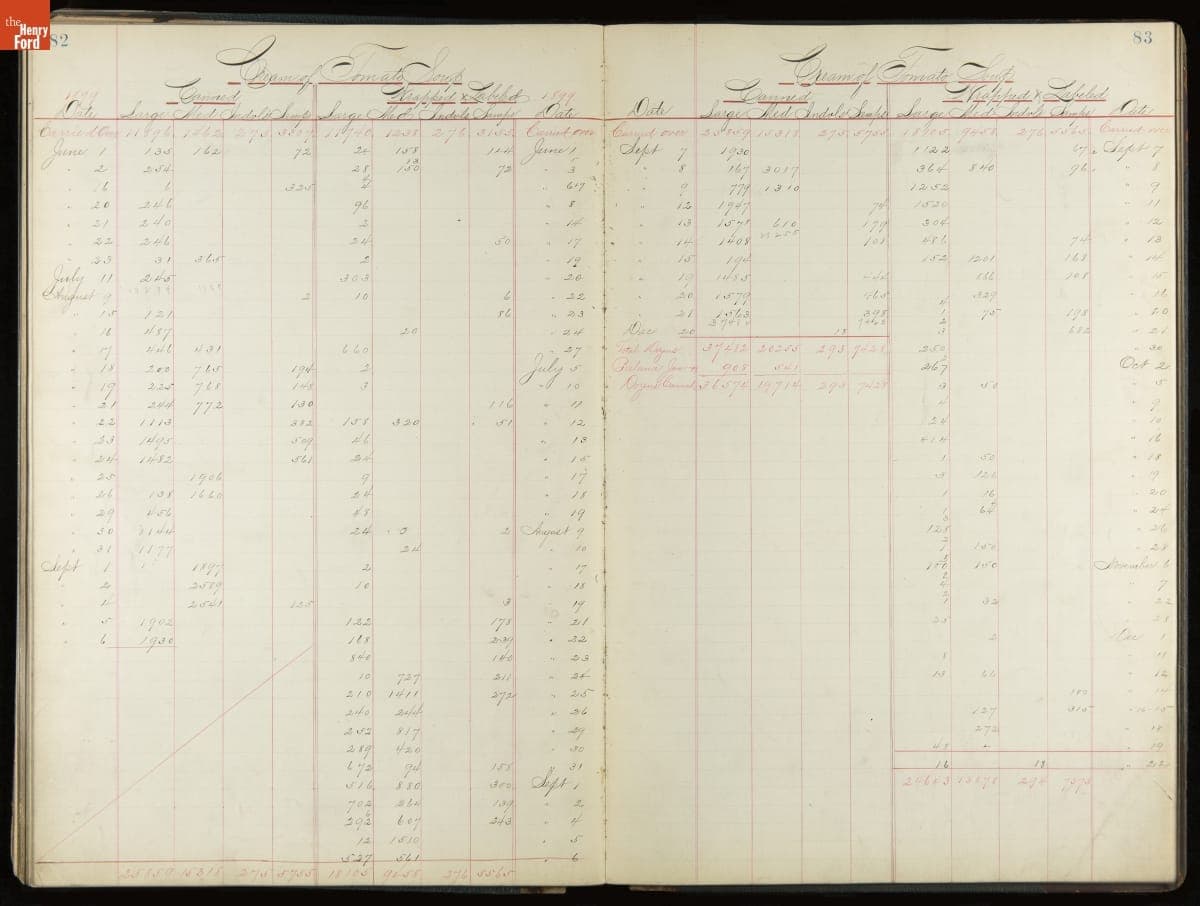 the
Henry
Ford
82
Cream of Tomato Soup
1899 Canned Wrapped & Labeled 1899
Date Large Med Indols Samps Large Med Indols Samps Date
Carried Over 275 11740 1238 276 3155 Carried over
June 1 135 162 72 24 158 114 June 1
" 2 254 28 150 72 " 3
" 16 6 325 4 " 6&7
" 20 246 96 " 8
" 21 240 2 " 14
" 22 246 24 50 " 17
" 23 31 365 2 " 19
July 11 245 303 " 20
August 9 2 10 6 " 22
" 15 121 86 " 23
" 16 487 20 " 24
" 17 446 431 660 " 27
" 18 200 765 194 2 July 5
" 19 225 768 148 3 " 10
" 21 244 772 130 116 " 11
" 22 1113 382 158 320 51 " 12
" 23 1495 509 46 " 13
" 24 1482 561 24 " 15
" 25 1906 9 " 17
" 26 138 1660 24 " 18
" 29 456 48 " 19
" 30 3144 24 3 2 August 9
" 31 1177 24 " 10
Sept 1 1897 2 " 17
" 2 2589 10 " 18
" 4 2541 125 3 " 19
" 5 1902 122 178 " 21
" 6 1930 168 239 " 22
840 140 " 23
10 727 211 " 24
210 1411 272 " 25
240 244 " 26
252 817 " 29
289 420 " 30
672 94 155 " 31
516 880 300 Sept 1
702 264 139 " 2
292 607 243 " 4
12 1510 " 5
527 561 " 6
25859 15318 275 5755 18105 276 5565
83
Cream of Tomato Soup
Canned Wrapped & Labeled
Date Large Med Indols Samps Large Med Indols Samps Date
Carried over 25859 15318 275 5755 18105 9458 276 5565 Carried over
Sept 7 1930 1122 67 Sept 7
" 8 167 3017 364 840 96 " 8
" 9 779 1310 1252 " 9
" 12 1947 74 1520 " 11
" 13 1578 610 179 304 " 12
" 14 1408 108 486 74 " 13
" 15 194 152 1201 168 " 14
" 19 1485 444 166 108 " 15
" 20 1579 465 329 " 16
" 21 1563 398 1 75 198 " 20
Dec 20 18 3 682 " 21
Total Dozens 37482 20255 293 7428 250 " 30
Balance Jan 908 541 267 Oct 2
Dozens Canned 36574 19714 293 7428 3 50 " 5
4 " 9
24 " 10
414 " 16
1 50 " 18
3 126 " 19
1 16 " 20
1 64 " 24
128 " 26
1 150 " 28
100 150 November 6
4 " 7
1 32 " 22
25 " 28
2 Dec 1
8 " 11
13 66 " 12
100 " 14
127 315 " 14-15
272 " 18
48 " 19
16 18 " 22
24653 13878 294 7373